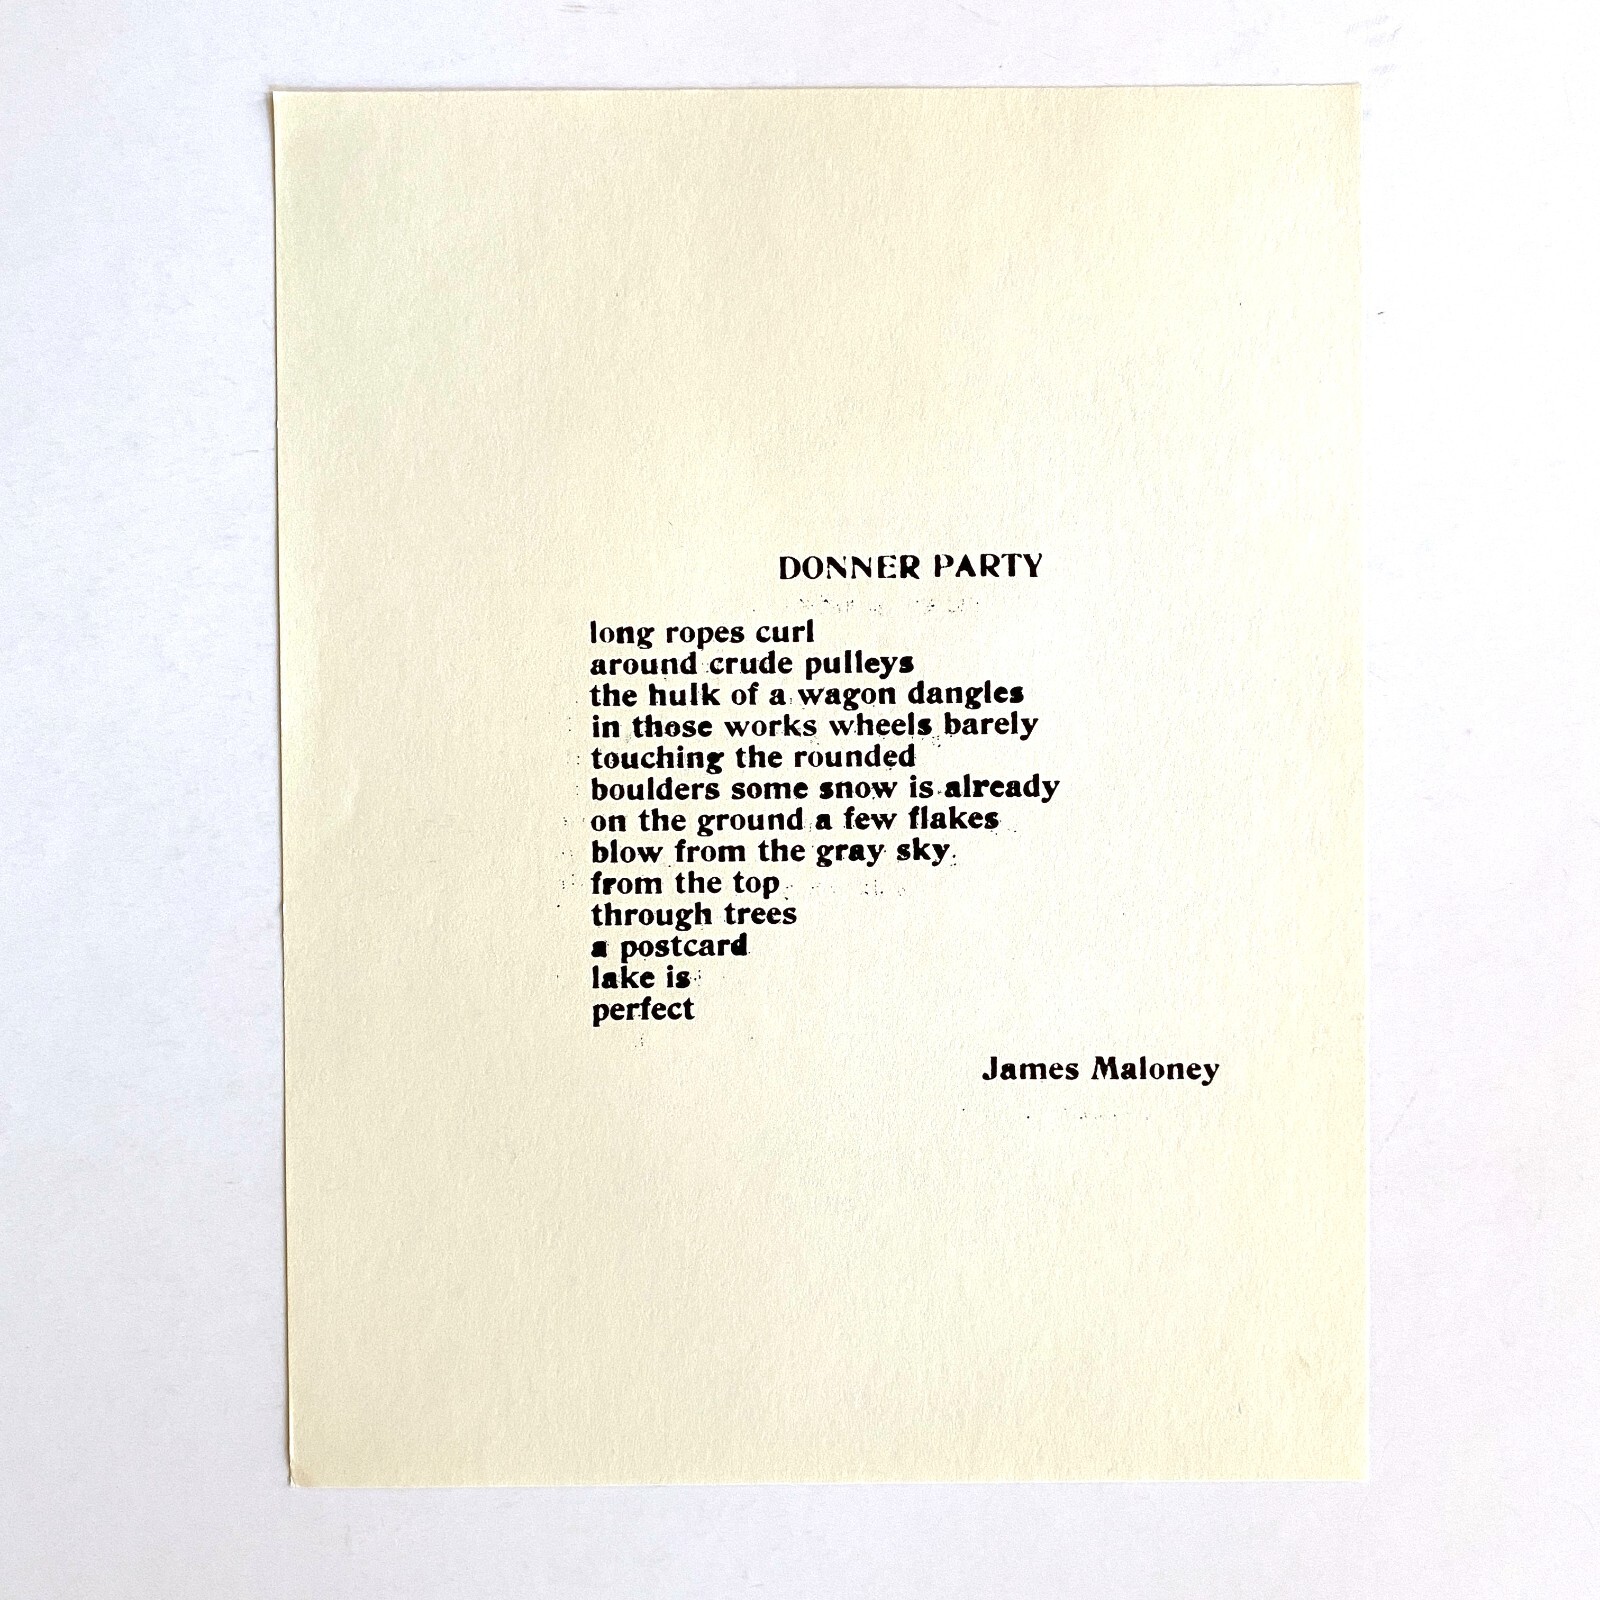 DONNER PARTY
long ropes curl
around crude pulleys
the hulk of a wagon dangles
in those works wheels barely
touching the rounded
boulders some snow is already
on the ground a few flakes
blow from the gray sky
from the top
through trees
a postcard
lake is
perfect
James Maloney